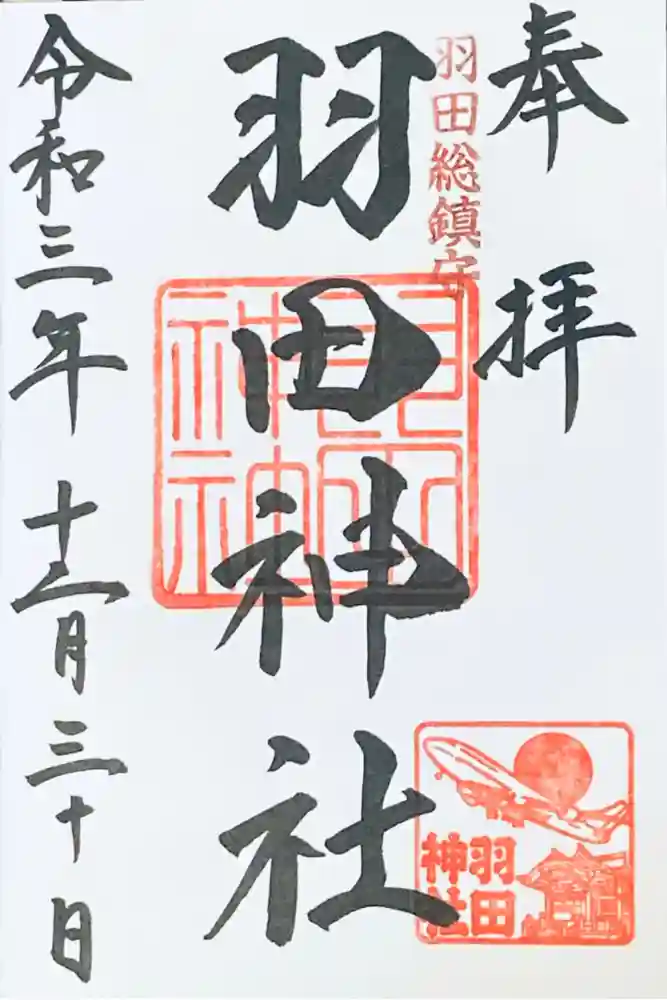 奉拝
羽田総鎮守
羽田神社
羽田神社
令和三年 十二月三十日
羽田
神社